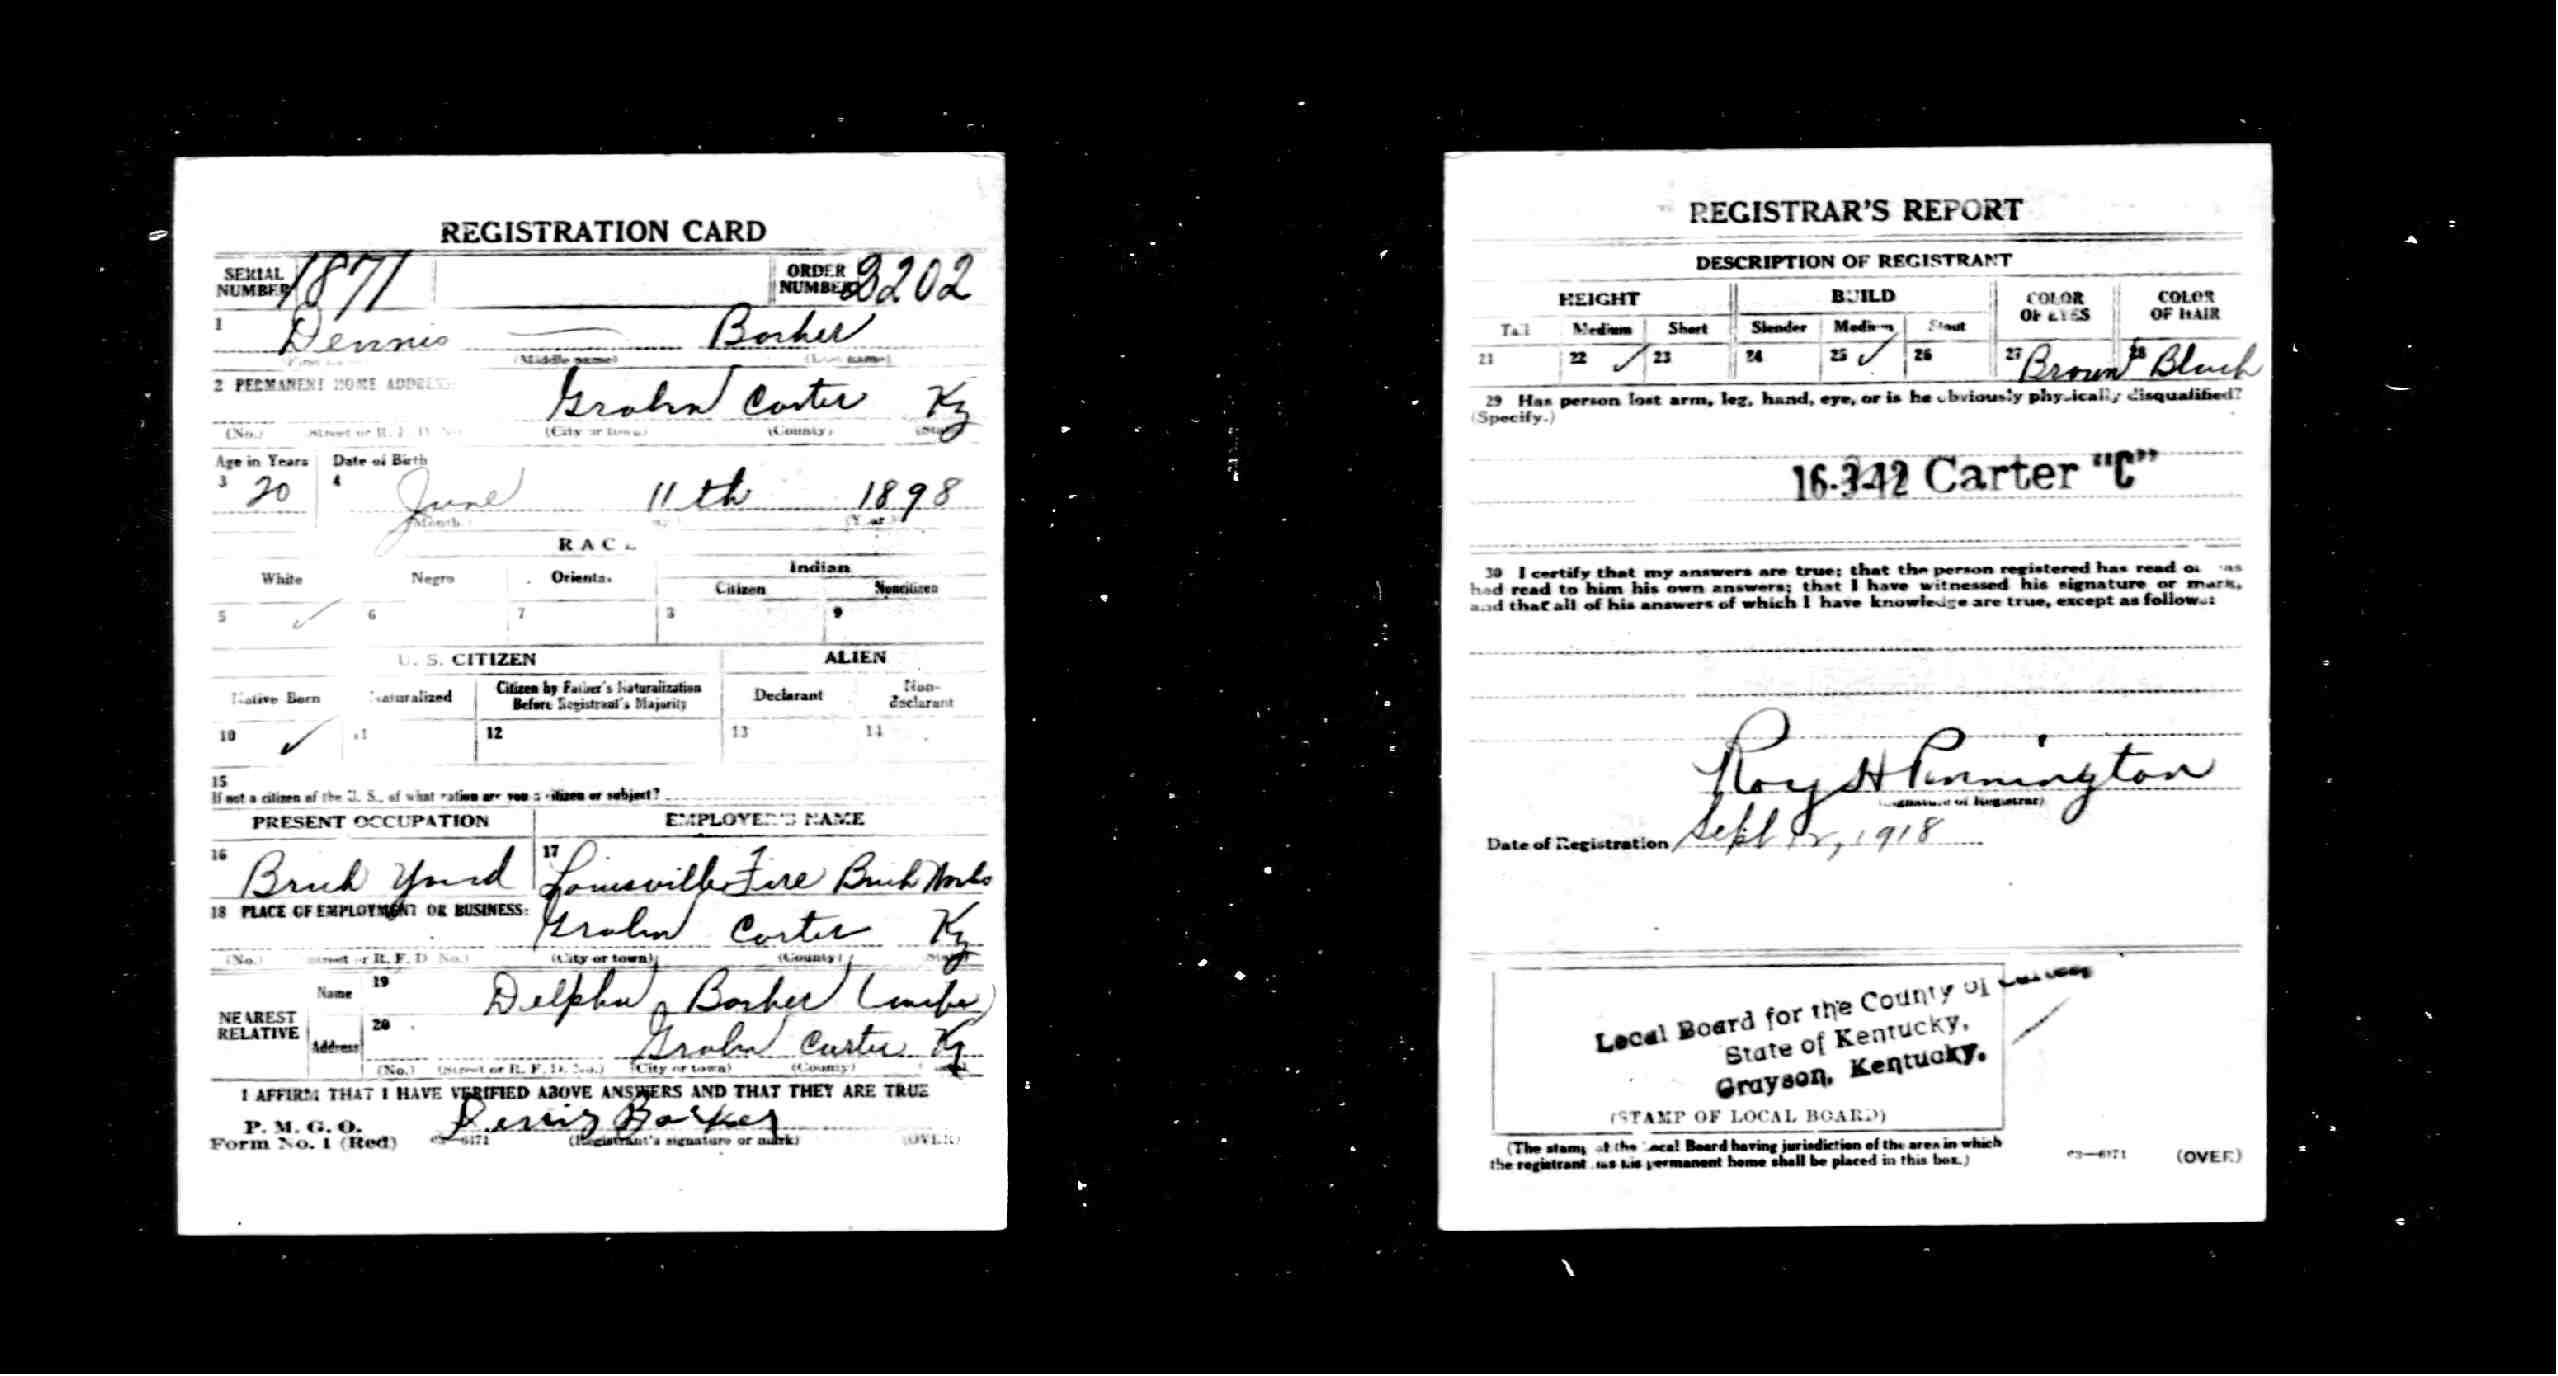 REGISTRATION CARD
SERIAL NUMBER 1871 ORDER NUMBER 3202
1 Dennis Barker
(Middle name) (Last name)
2 PERMANENT HOME ADDRESS:
Grahn Carter Ky
(No.) (Street or R. F. D. No.) (City or town) (County) (State)
Age in Years Date of Birth
3 20 4 June 11th 1898
(Month) (Year)
RACE
White Negro Oriental Indian
Citizen Noncitizen
5 ✓ 6 7 8 9
U. S. CITIZEN ALIEN
Native Born Naturalized Citizen by Father's Naturalization Before Registrant's Majority Declarant Non-declarant
10 ✓ 11 12 13 14
15
If not a citizen of the U. S., of what nation are you a citizen or subject?
PRESENT OCCUPATION EMPLOYER'S NAME
16 Brick Yard 17 Louisville Fire Brick Works
18 PLACE OF EMPLOYMENT OR BUSINESS:
Grahn Carter Ky
(No.) (Street or R. F. D. No.) (City or town) (County) (State)
NEAREST RELATIVE Name 19 Barker (wife)
Address 20 Grahn Carter Ky
(No.) (Street or R. F. D. No.) (City or town) (County)
I AFFIRM THAT I HAVE VERIFIED ABOVE ANSWERS AND THAT THEY ARE TRUE
P. M. G. O.
Form No. 1 (Red) Barker
03—6171 (Registrant's signature or mark) (OVER)
REGISTRAR'S REPORT
DESCRIPTION OF REGISTRANT
HEIGHT BUILD COLOR OF EYES COLOR OF HAIR
Tall Medium Short Slender Medium Stout
21 22 ✓ 23 24 25 ✓ 26 27 Brown 28 Black
29 Has person lost arm, leg, hand, eye, or is he obviously physically disqualified?
(Specify.)
16-3-12 Carter "C"
30 I certify that my answers are true; that the person registered has read or has
had read to him his own answers; that I have witnessed his signature or mark,
and that all of his answers of which I have knowledge are true, except as follows:
Roy H Pennington
(Signature of Registrar)
Date of Registration Sept 12, 1918
Local Board for the County of Carter
State of Kentucky,
Grayson, Kentucky.
(STAMP OF LOCAL BOARD)
(The stamp of the Local Board having jurisdiction of the area in which
the registrant has his permanent home shall be placed in this box.)
03—6171 (OVER)